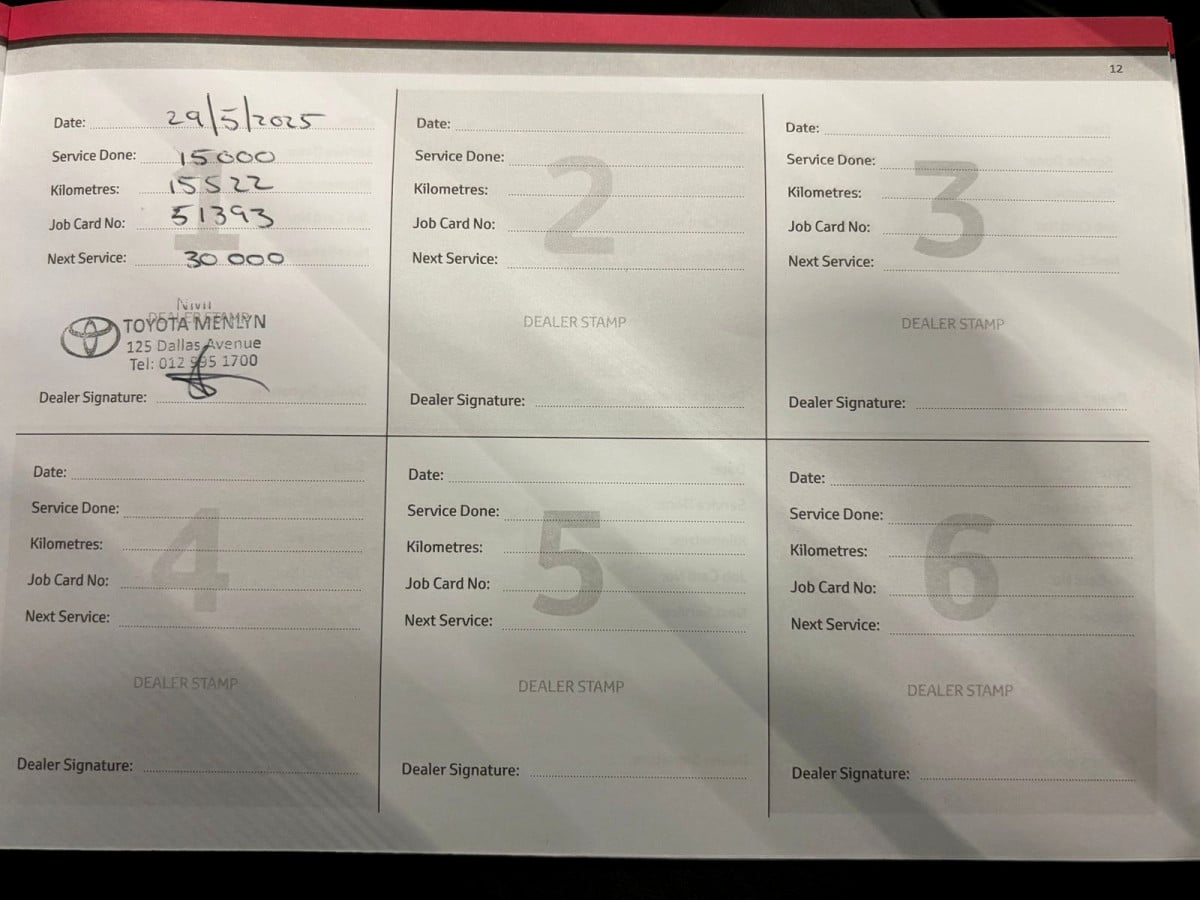 12
Date: 29/5/2025
Service Done: 15000
Kilometres: 15522
Job Card No: 51393
Next Service: 30 000
1
DEALER STAMP
TOYOTA MENLYN
125 Dallas Avenue
Tel: 012 995 1700
Dealer Signature:
Date:
Service Done:
Kilometres:
Job Card No:
Next Service:
2
DEALER STAMP
Dealer Signature:
Date:
Service Done:
Kilometres:
Job Card No:
Next Service:
3
DEALER STAMP
Dealer Signature:
Date:
Service Done:
Kilometres:
Job Card No:
Next Service:
4
DEALER STAMP
Dealer Signature:
Date:
Service Done:
Kilometres:
Job Card No:
Next Service:
5
DEALER STAMP
Dealer Signature:
Date:
Service Done:
Kilometres:
Job Card No:
Next Service:
6
DEALER STAMP
Dealer Signature: